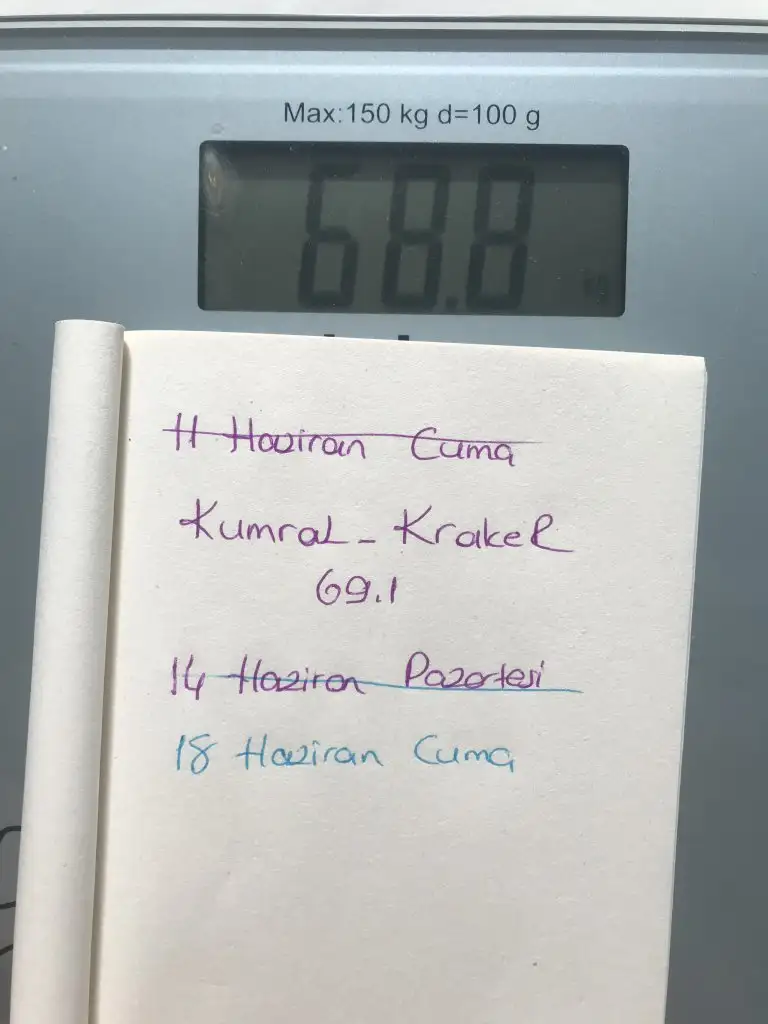 Max:150 kg d=100 g
68.8
kg
11 Haziran Cuma
Kumral - Kraker
69.1
14 Haziran Pazartesi
18 Haziran Cuma